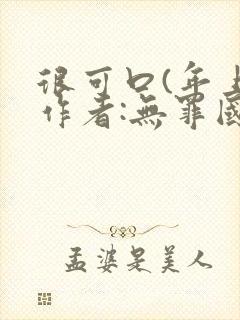 很可口(年上
作者:無罪國
孟婆是美人